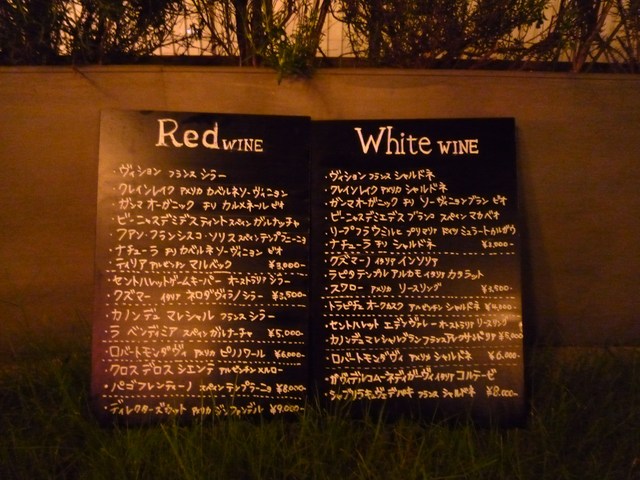 Red WINE
・ヴィション フランス シラー
・クレインレイク アメリカ カベルネソーヴィニヨン
・ガンマ オーガニック チリ カルメネール ビオ
・ビーニャスデミデスティント スペイン ガルナッチャ
・ファン・フランシスコ・ソリス スペイン テンプラニーニョ
・ナチューラ チリ カベルネソーヴィニヨン ビオ
・ティリア アルゼンチン マルベック ¥3,000-
・セントハレットゲームキーパー オーストラリア シラー
・クズマーノ イタリア ネロダヴォラ/シラー ¥3,500-
・カノンデュ マレシャル フランス シラー
・ラ ベンディミア スペイン ガルナーチャ ¥5,000-
・ロバートモンダヴィ アメリカ ピノノワール ¥6,000-
・クロス デロス シエテ アルゼンチン メルロー
・パゴフロレンティーノ スペイン テンプラニーニョ ¥8,000-
・ディレクターズカット アメリカ ジンファンデル ¥9,000-
White WINE
・ヴィション フランス シャルドネ
・クレインレイク アメリカ シャルドネ
・ガンマオーガニック チリ ソーヴィニヨンブラン ビオ
・ビーニャスデミエデス ブランコ スペイン マカベオ
・リープフラウミルヒ ドイツ ミュラートゥルガウ
・ナチューラ チリ シャルドネ ¥3,000-
・クズマーノ イタリア インソリア
・ラピタデンカレ アルカモ イタリア カタラット
・スワロー アメリカ リースリング ¥3,500-
・トラピチェ オークカスク アルゼンチン シャルドネ ¥4,000-
・セントハレット エデンヴァレー オーストラリア リースリング
・カノンデュマレシャルブラン フランス ¥5,000
・ロバートモンダヴィ アメリカ シャルドネ ¥6,000-
イタリア コルテーゼ
フランス シャルドネ ¥8,000-